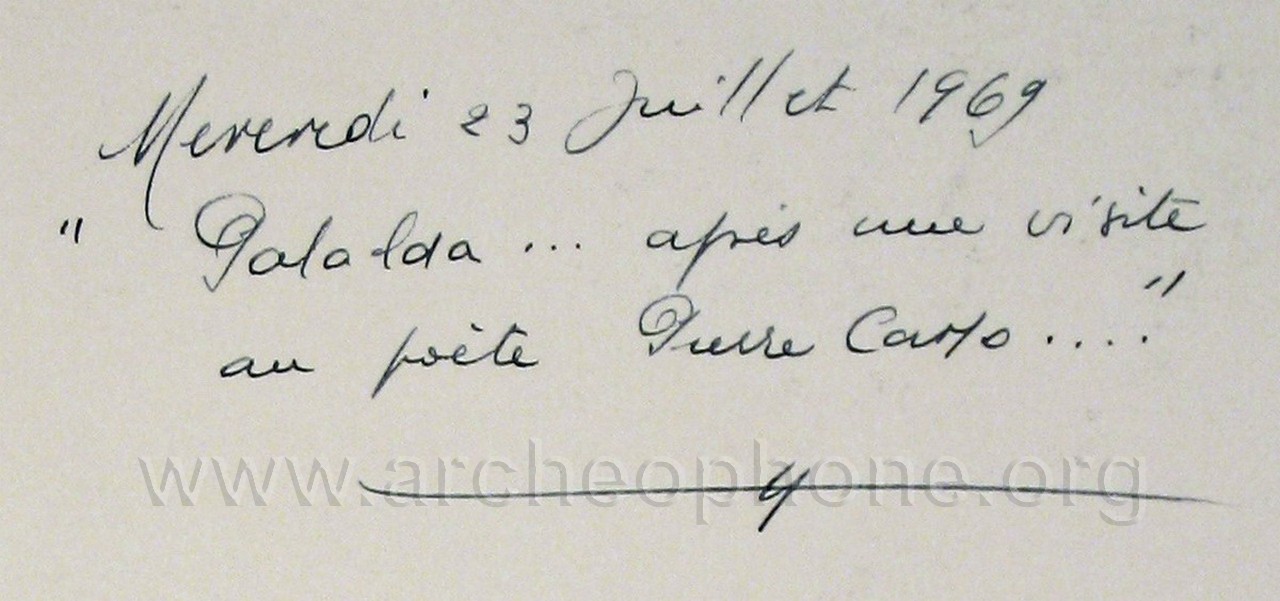 Mercredi 23 Juillet 1969
" Palalda ... après une visite
au poète Pierre Camo...."
www.archeophone.org